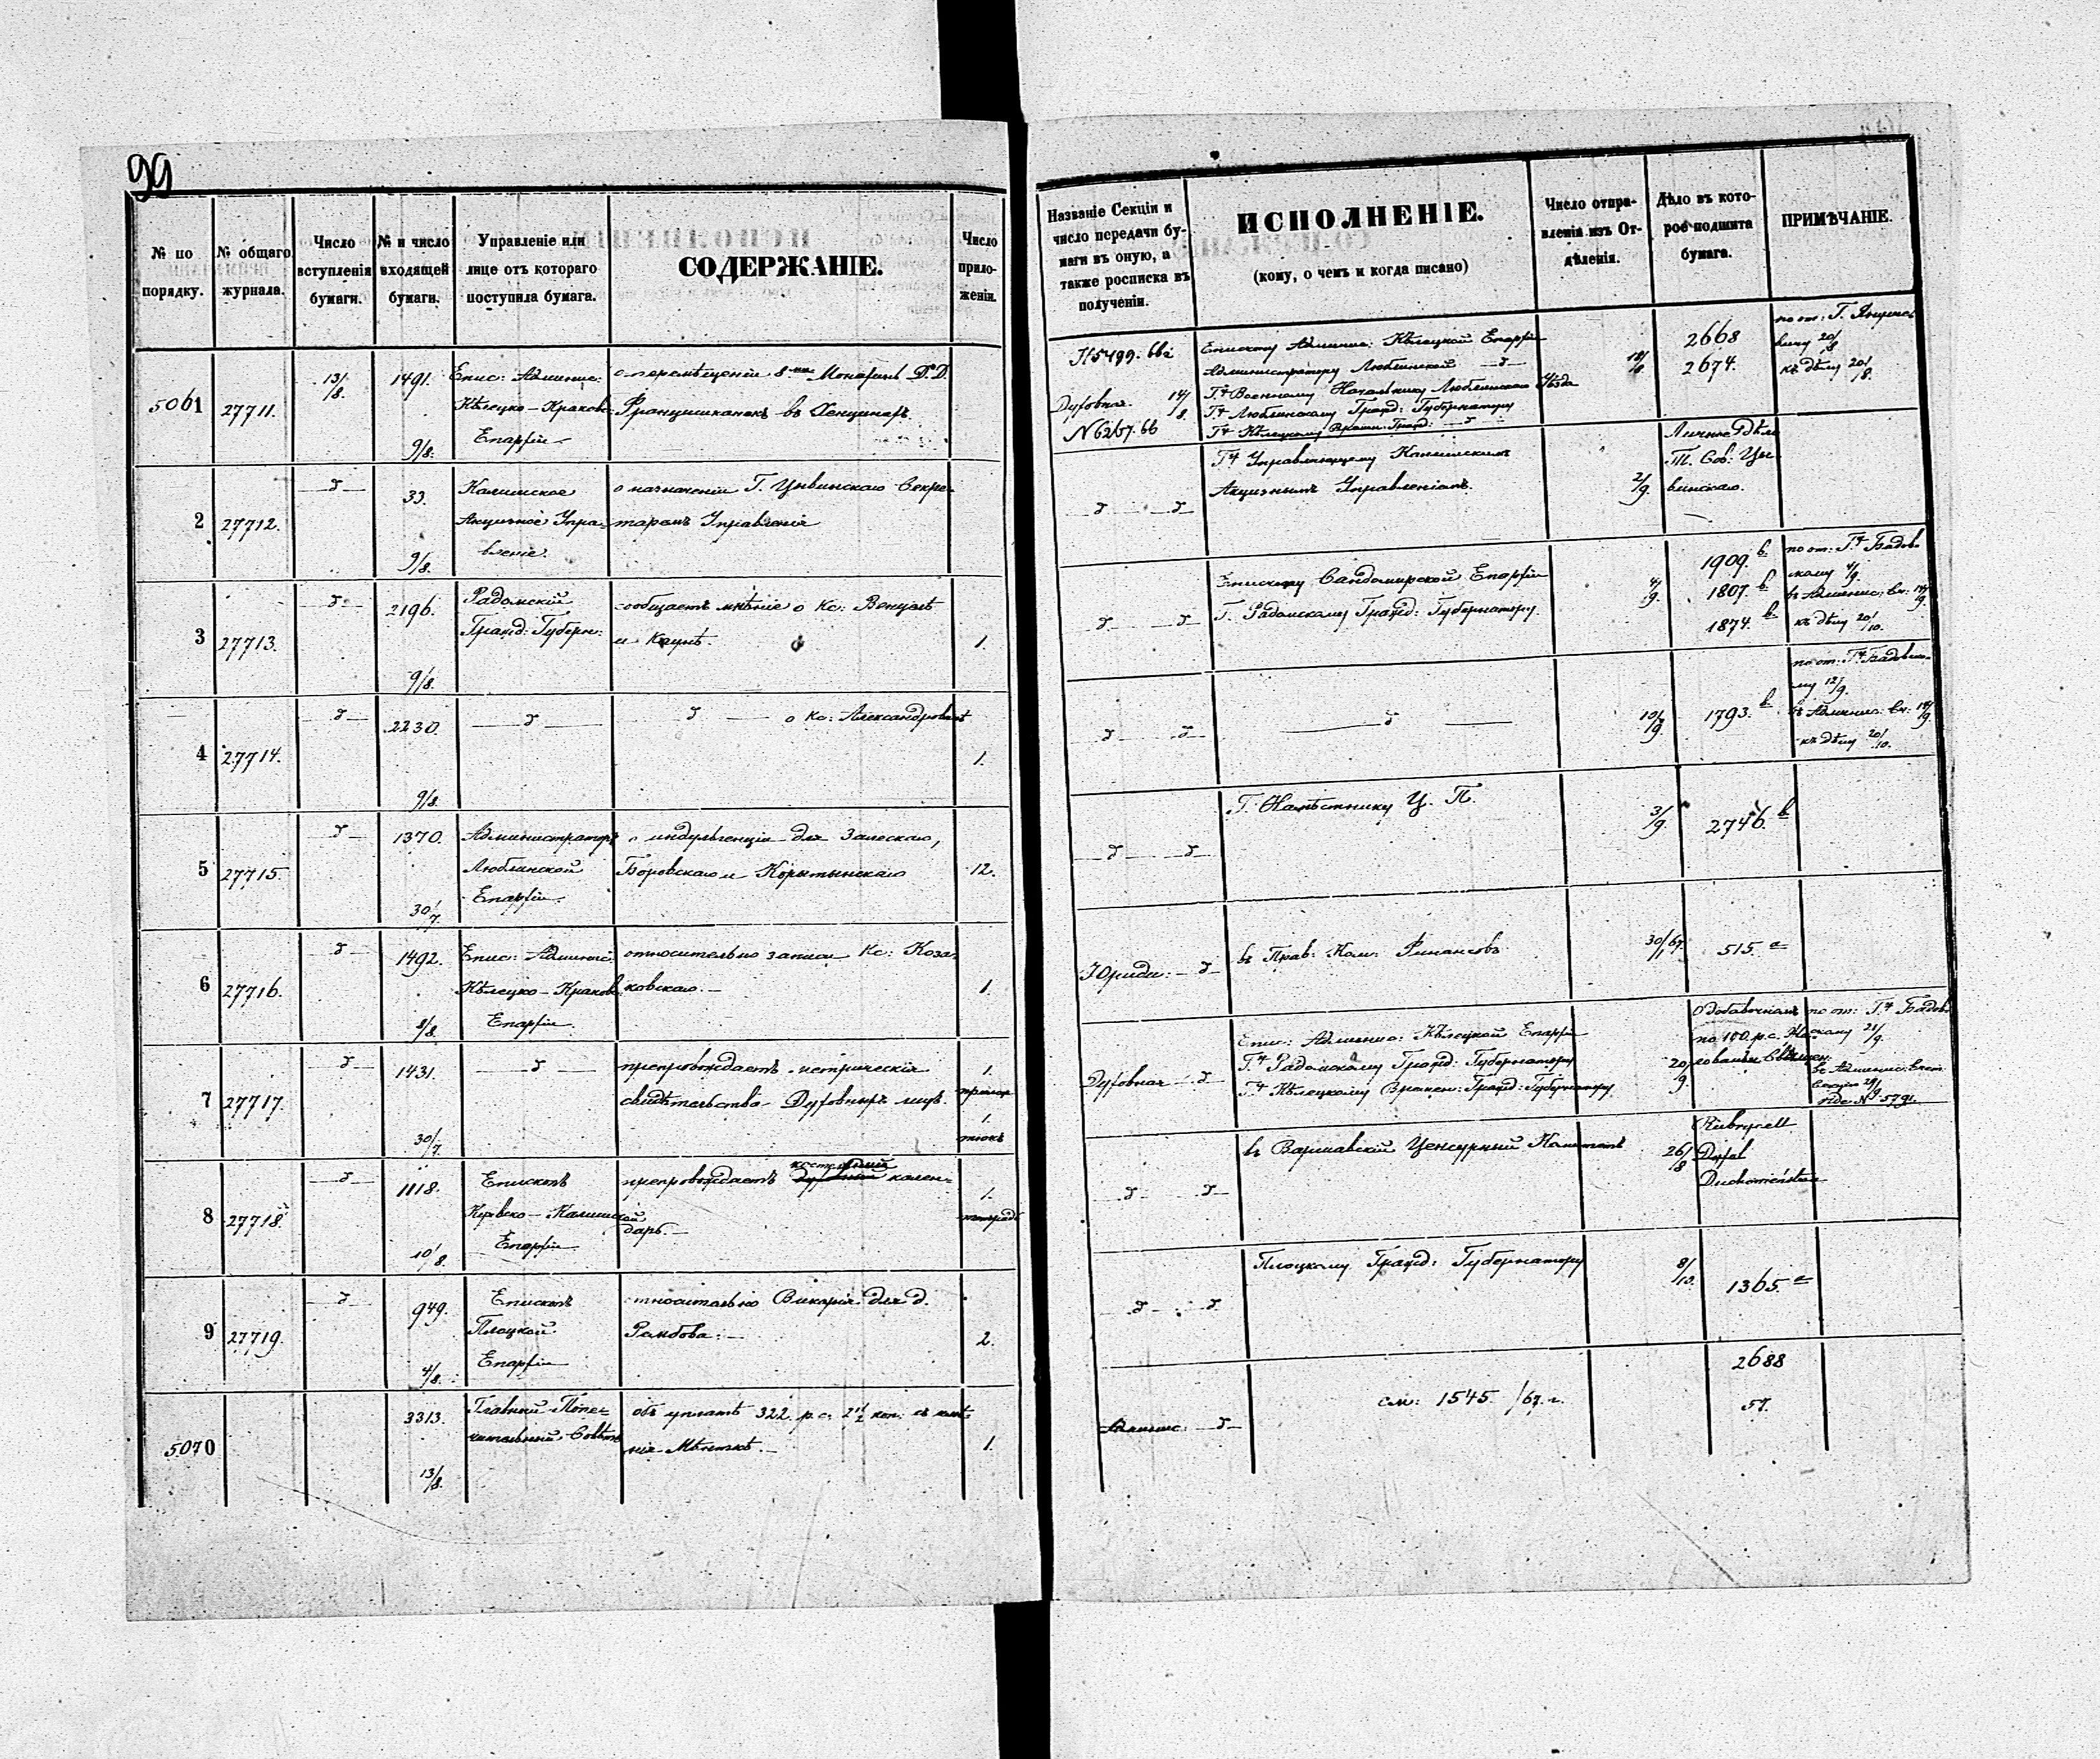 99
№ по порядку.
№ общаго журнала.
Число вступленія бумаги.
№ и число входящей бумаги.
Управленіе или лице отъ котораго поступила бумага.
СОДЕРЖАНІЕ.
Число приложеній.
5061
27711.
13/8.
1491.
9/8.
Епис: Админис:
Кѣлецко-Краков:
Епархіи
о перемѣщеніи 8-ми Монахинь
Францишканокъ въ Хенцинахъ.
2
27712.
33.
9/8.
Калишское
Акцизное Упра-
вленіе.
о назначеніи Г. Цывинскаго Секре-
таремъ Управленія
3
27713.
2196.
9/8.
Радомскій
Гражд: Губерн:
сообщаетъ мнѣніе о Кс: Венцелѣ
и
1.
4
27714.
2230.
9/8.
о Кс: Александровичѣ
1.
5
27715.
1370.
30/7.
Администраторъ
Люблинской
Епархіи.
о индульгенціи для Залескаго,
Боровскаго и Корытынскаго
12.
6
27716.
1492.
8/8.
Епис: Админис:
Кѣлецко-Краков:
Епархіи.
относительно записи Кс: Коза-
ковскаго.
1.
7
27717.
1431.
30/7.
препровождаетъ метрическія
свидѣтельства Духовныхъ лицъ.
1.
1.
тюкъ
8
27718.
1118.
10/8.
Епископъ
Куявско-Калишской
Епархіи
препровождаетъ костельный духовный кален-
дарь.
1.
9
27719.
949.
4/8.
Епископъ
Плоцкой
Епархіи
относительно Викарія для д.
Рамбова.
2.
5070
3313.
13/8.
Главный Попе-
чительный Совѣтъ
объ уплатѣ 322 р. с. 2½ коп: съ имѣ-
нія
1.
Названіе Секціи и число передачи бумаги въ оную, а также росписка въ полученіи.
ИСПОЛНЕНІЕ.
(кому, о чемъ и когда писано)
Число отправленія изъ Отдѣленія.
Дѣло въ которое подшита бумага.
ПРИМѢЧАНІЕ.
Духовная 14/8.
N 6267.66
Епископу Админис: Кѣлецкой Епархіи
Администратору Люблинской
Г-ну Военному Начальнику Люблинскаго Уѣзда
Г-ну Люблинскому Гражд: Губернатору
2668
2674.
къ дѣлу 20/8.
Г-ну Управляющему Калишскимъ
Акцизнымъ Управленіемъ.
2/9.
Личное Дѣло
Т. Сов: Цы-
винскаго.
Епископу Сандомирской Епархіи
Г. Радомскому Гражд: Губернатору.
4/9.
1909. в
1807. в
1874. в
по от: Г-ну Бадов-
скому 4/9.
въ Админис: вн: 14/9
къ дѣлу 20/10.
10/9.
1793. в
по от: Г-ну Бадовско-
му 12/9.
въ Админис: вн: 14/9.
къ дѣлу 20/10.
Г. Намѣстнику Ц. П.
3/9.
2746. в
Юриди:
въ Прав: Ком: Финансовъ
515. а
Духовная
Епис: Админис: Кѣлецкой Епархіи
Г-ну Радомскому Гражд: Губернатору
Г-ну Кѣлецкому Времен: Гражд: Губернатору
20/9
О добавочномъ
по 100 р. с. Жа-
лованьи Священ:
по от: Г-ну Бадов-
скому 21/9.
N 5791.
въ Варшавскій Ценсурный Комитетъ
26/8
Плоцкому Гражд: Губернатору
8/10.
1365. а
Админис:
см: 1545 /67. г.
2688
57.